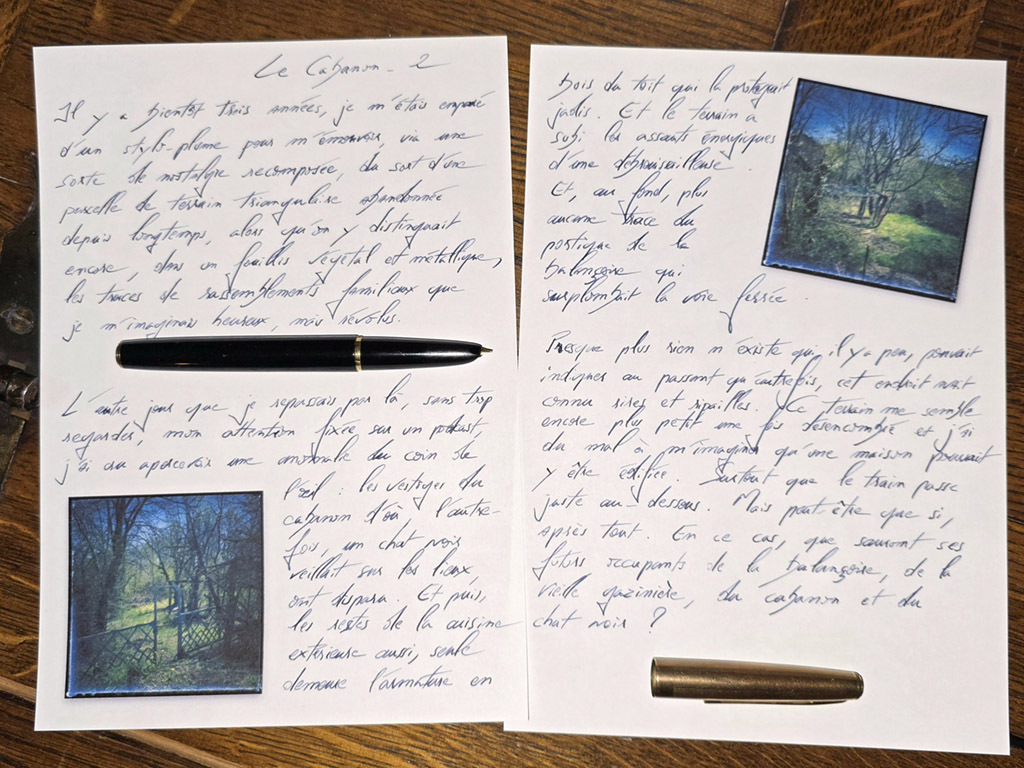 Le Cabanon - 2
Il y a bientôt trois années, je m'étais emparé
d'un stylo-plume pour m'émouvoir, via une
sorte de nostalgie recomposée, du sort d'une
parcelle de terrain triangulaire abandonnée
depuis longtemps, alors qu'on y distinguait
encore, dans un fouillis végétal et métallique,
les traces de rassemblements familiaux que
je m'imaginais heureux, mais révolus.
L'autre jour que je repassais par là, sans trop
regarder, mon attention fixée sur un podcast,
j'ai cru apercevoir une anomalie du coin de
l'œil : les vestiges du
cabanon d'où, l'autre-
fois, un chat noir
veillait sur les lieux,
ont disparu. Et puis,
les restes de la cuisine
extérieure aussi, seule
demeure l'armature en
bois du toit qui la protégeait
jadis. Et le terrain a
subi les assauts énergiques
d'une débroussailleuse.
Et, au fond, plus
aucune trace du
portique de la
balançoire qui
surplombait la voie ferrée.
Presque plus rien n'existe qui, il y a peu, pouvait
indiquer au passant qu'autrefois, cet endroit avait
connu rires et ripailles. Ce terrain me semble
encore plus petit une fois désencombré et j'ai
du mal à m'imaginer qu'une maison pouvait
y être édifiée. Surtout que le train passe
juste au-dessous. Mais peut-être que si,
après tout. En ce cas, que sauront ses
futurs occupants de la balançoire, de la
vieille gazinière, du cabanon et du
chat noir ?